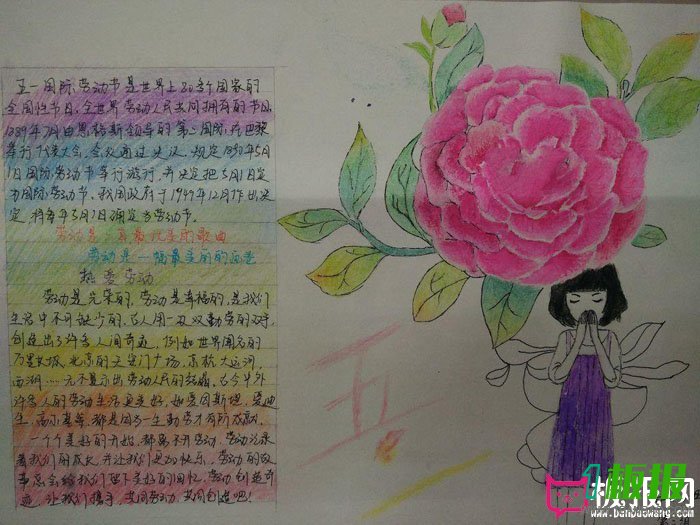 五一国际劳动节是世界上80多个国家的
全国性节日。全世界劳动人民共同拥有的节日。
1889年7月由恩格斯领导的第二国际,在巴黎
举行代表大会。会议通过决议,规定1890年5月
1日国际劳动节举行游行,并决定把5月1日定
为国际劳动节。我国政府于1949年12月作出决
定,将每年5月1日确定为劳动节。
劳动是一首最优美的歌曲
劳动是一幅最美丽的画卷
热爱劳动
劳动是光荣的,劳动是幸福的,是我们
生活中不可缺少的。古人用一双双勤劳的双手,
创造出了许多人间奇迹,例如世界闻名的
万里长城、北京的天安门广场、京杭大运河、
西湖……无不显示出劳动人民的结晶。古今中外
许多人的劳动生活更美好,如爱因斯坦、爱迪
生、高尔基等,都是因为一生勤劳才有所成就。
一个个美好的开始,都离不开劳动,劳动记录
着我们的成长,并让我们更加快乐,劳动的故
事总会给我们留下美好的回忆,劳动创造奇
迹,让我们携手,共同劳动,共同创造吧!
五一
板报网
www.banbaowang.com